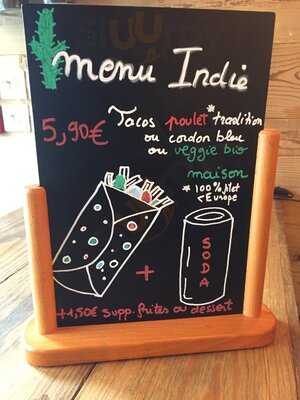 menu Indie
Tacos poulet* tradition
5,90€ ou cordon bleu
ou veggie bio
maison
* 100% filet
< Europe
+
SODA
+1,50€ supp. frites ou dessert